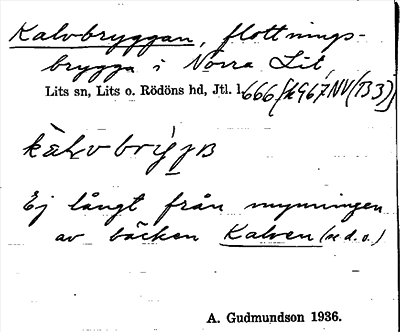 Kalvbryggan, flottnings-
brygga i Norra Lit,
Lits sn, Lits o. Rödöns hd, Jtl. l. 666 [k967NV(B3)]
Ej långt från mynningen
av bäcken Kalven (se d. o.)
A. Gudmundson 1936.